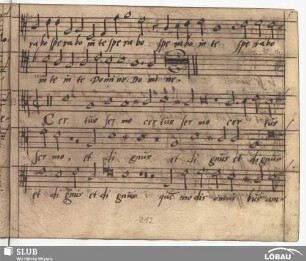 rabo spe rabo in te spe ra bo spe ra bo in te spe rabo
in te in te Domine Do mi ne
Cer tus ser mo cer tus ser mo cer tus
ser mo, et di gnus et di gnus et dignus
et di gnus et di gnus om
212
SLUB
Wir führen Wissen.
LÖBAU